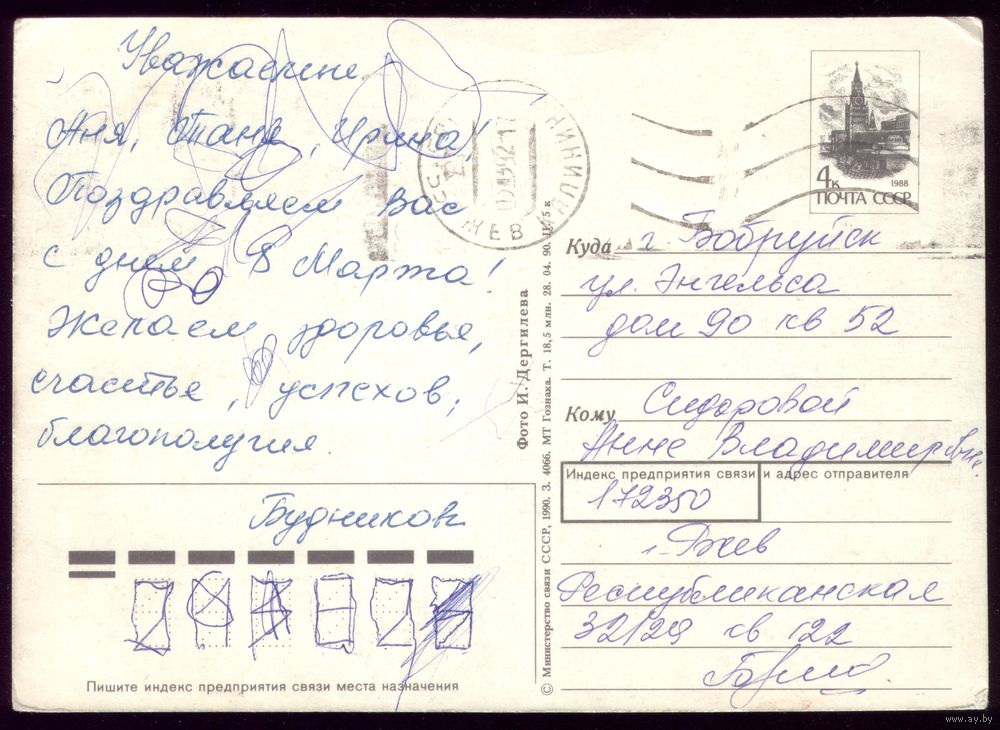 Уважаемые
Аня, Таня, Ирина!
Поздравляем Вас
с днем 8 Марта!
Желаем здоровья,
счастья, успехов,
благополучия.
Будниковы
Пишите индекс предприятия связи места назначения
© Министерство связи СССР, 1990. З. 4066. МТ Гознака. Т. 18,5 млн. 28. 04. 90. Ц. 5 к
Фото И. Дергилева
4к
1988
ПОЧТА СССР
Куда г. Бобруйск
ул. Энгельса
дом 90 кв 52
Кому Сидоровой
Анне Владимировне.
Индекс предприятия связи и адрес отправителя
172350
г. Ржев
Республиканская
32/29 кв 122
www.ay.by